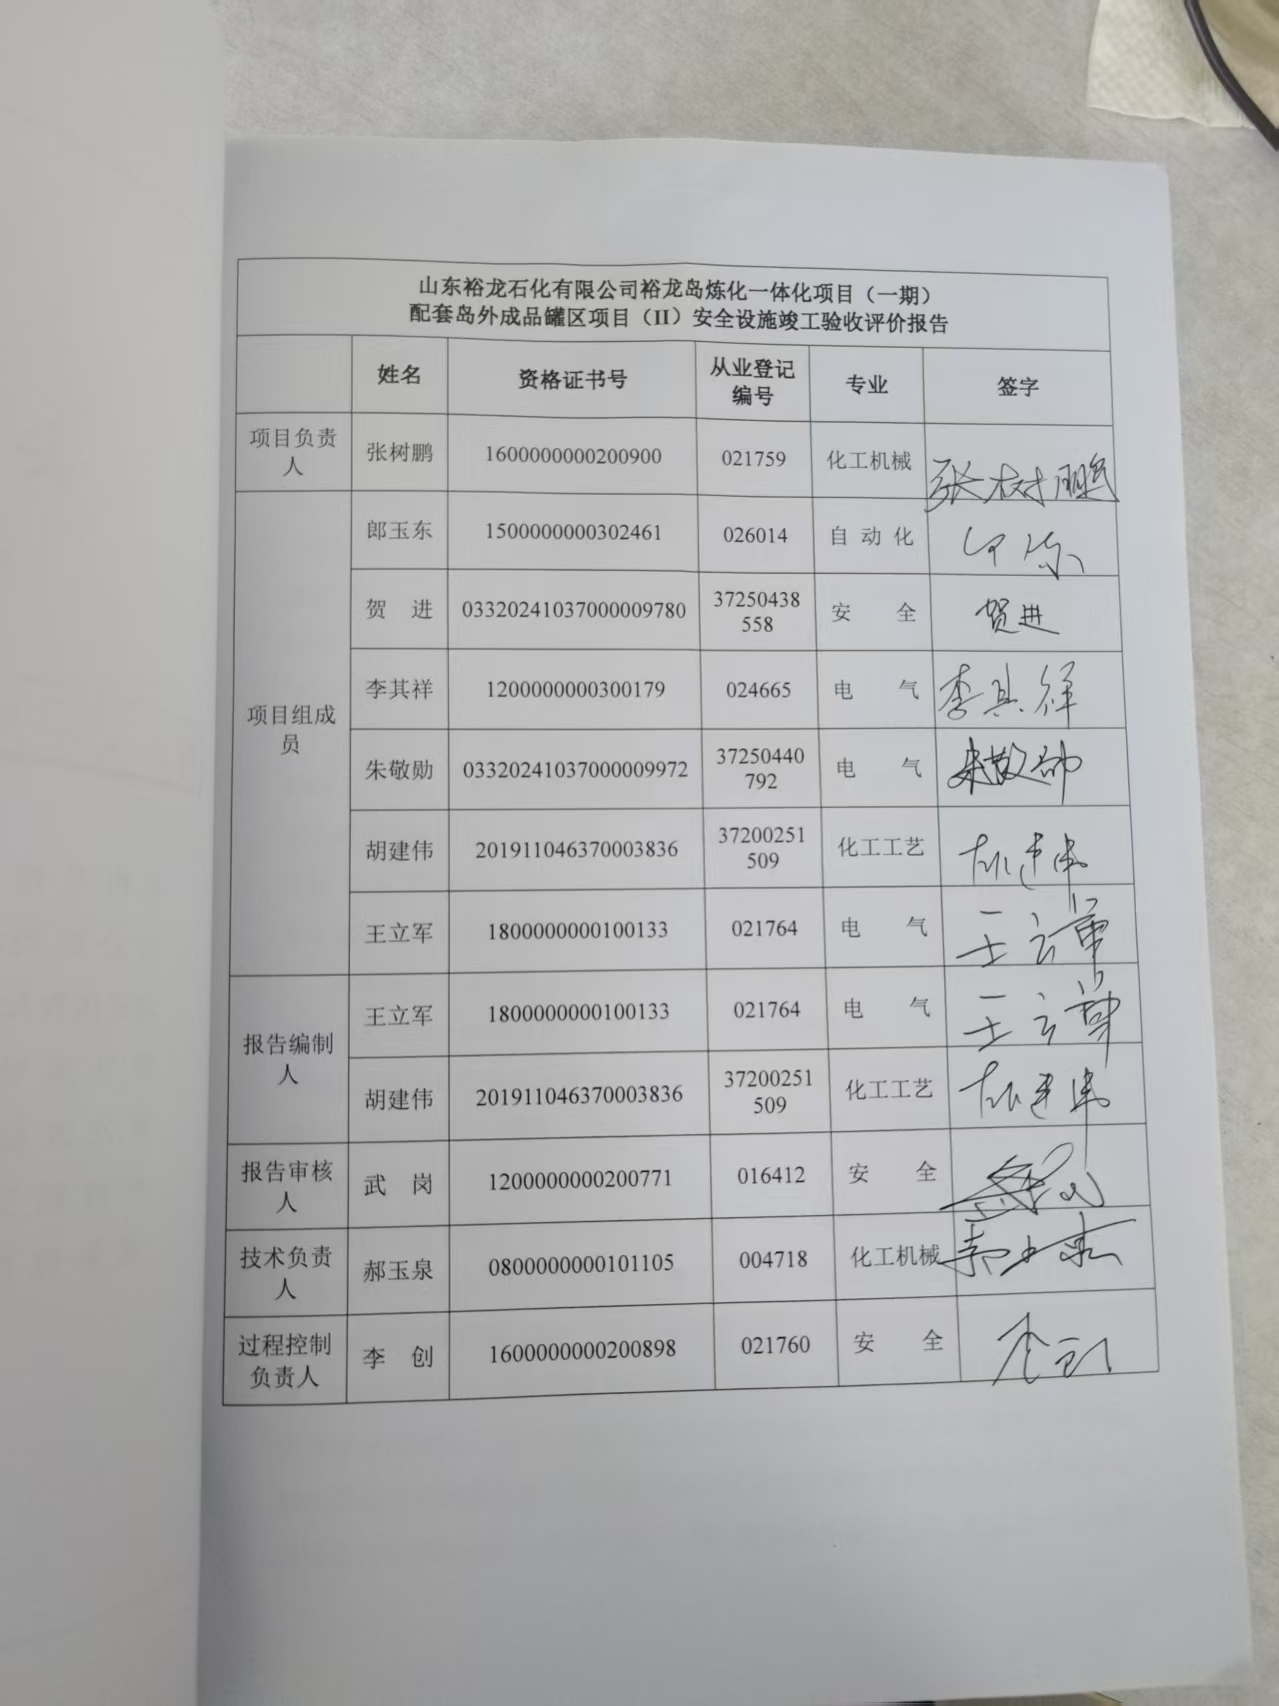 山东裕龙石化有限公司裕龙岛炼化一体化项目（一期）
配套岛外成品罐区项目（II）安全设施竣工验收评价报告
姓名 资格证书号 从业登记编号 专业 签字
项目负责人 张树鹏 1600000000200900 021759 化工机械 张树鹏
项目组成员 郎玉东 1500000000302461 026014 自动化
贺进 03320241037000009780 37250438558 安全 贺进
李其祥 1200000000300179 024665 电气 李其祥
朱敬勋 03320241037000009972 37250440792 电气 朱敬勋
胡建伟 201911046370003836 37200251509 化工工艺 胡建伟
王立军 1800000000100133 021764 电气 王立军
报告编制人 王立军 1800000000100133 021764 电气 王立军
胡建伟 201911046370003836 37200251509 化工工艺 胡建伟
报告审核人 武岗 1200000000200771 016412 安全
技术负责人 郝玉泉 0800000000101105 004718 化工机械 郝玉泉
过程控制负责人 李创 1600000000200898 021760 安全 李创